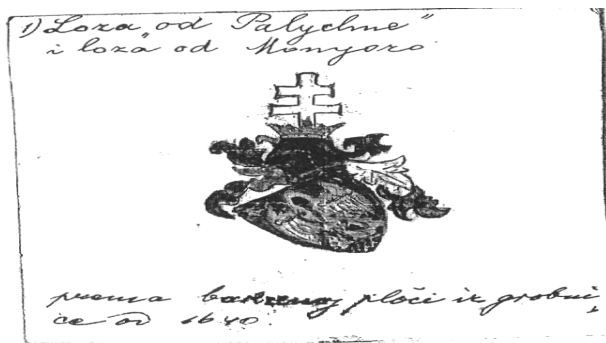 1) Loza „od Palychne"
i loza od Monyoro
prema bakrenoj ploči iz grobni,
ce od 1640.